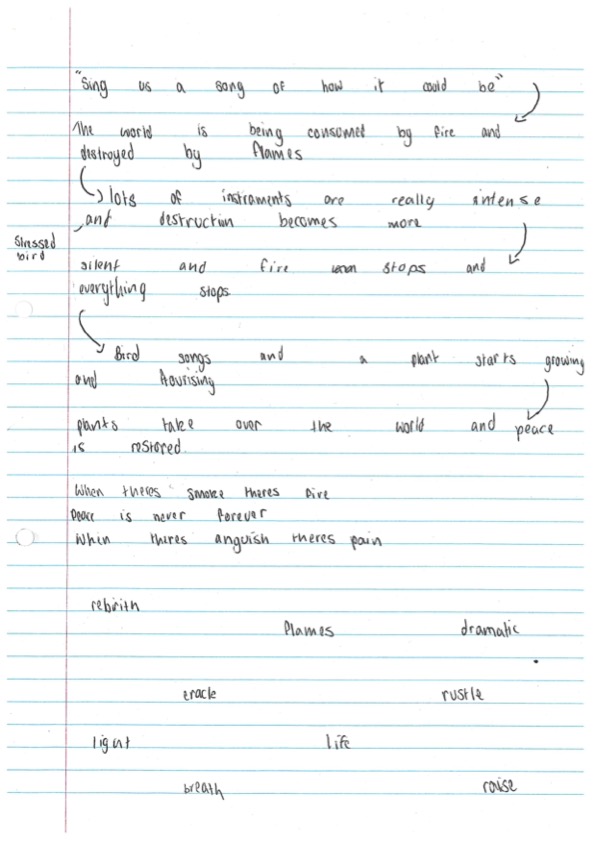 "Sing us a song of how it could be"
The world is being consumed by fire and
destroyed by flames
lots of instraments are really intense
,and destruction becomes more
Stessed
bird
silent and fire stops and
everything stops
Bird songs and a plant starts growing
and flourising
plants take over the world and peace
is restored.
When theres smoke theres fire
Peace is never forever
When theres anguish theres pain
rebirith
flames dramatic
crackle rustle
light life
breath